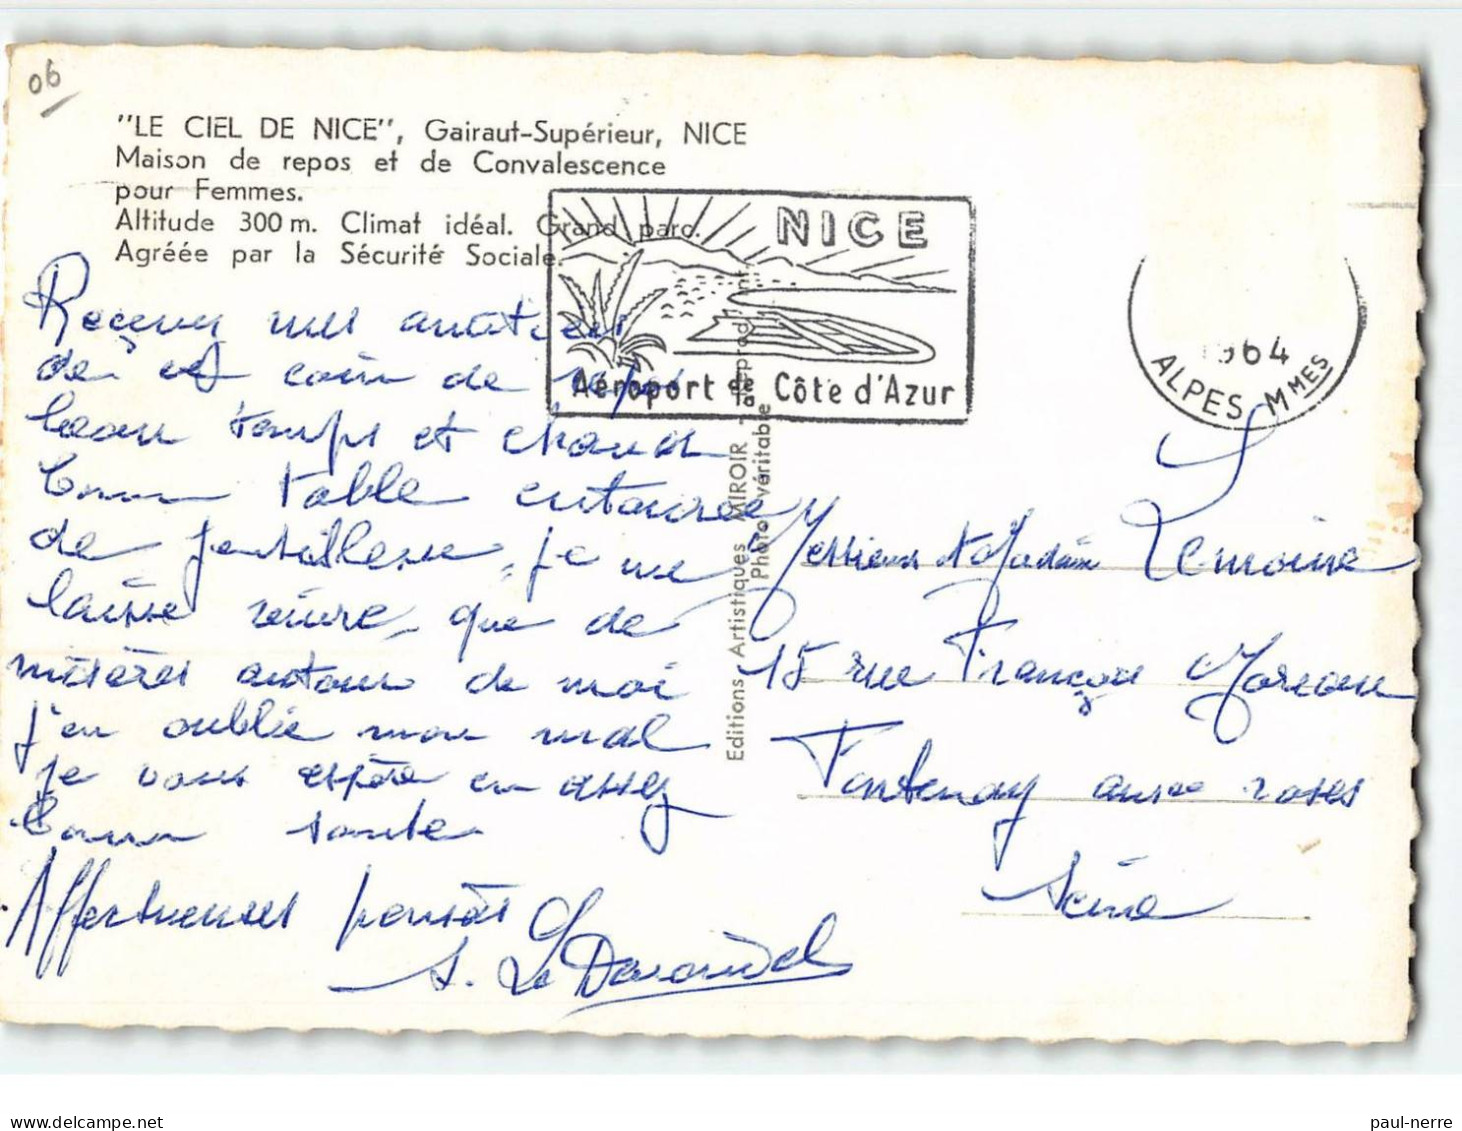 06
"LE CIEL DE NICE", Gairaut-Supérieur, NICE
Maison de repos et de Convalescence
pour Femmes.
Altitude 300 m. Climat idéal. Grand parc.
Agréée par la Sécurité Sociale.
NICE
Aéroport de Côte d'Azur
1964
ALPES MMES
Recevez mes amitiés
de ce coin de repos
beau temps et chaud
bonne table entourée
de gentillesse, je me
laisse vivre, que de
misères autour de moi
j'en oublie mon mal
je vous espère en assez
bonne santé
Affectueuses pensées
Editions Artistiques MIROIR
Photo véritable
Messieurs et Madame Lemoine
15 rue François Moreau
Fontenay aux roses
Seine
paul-nerre